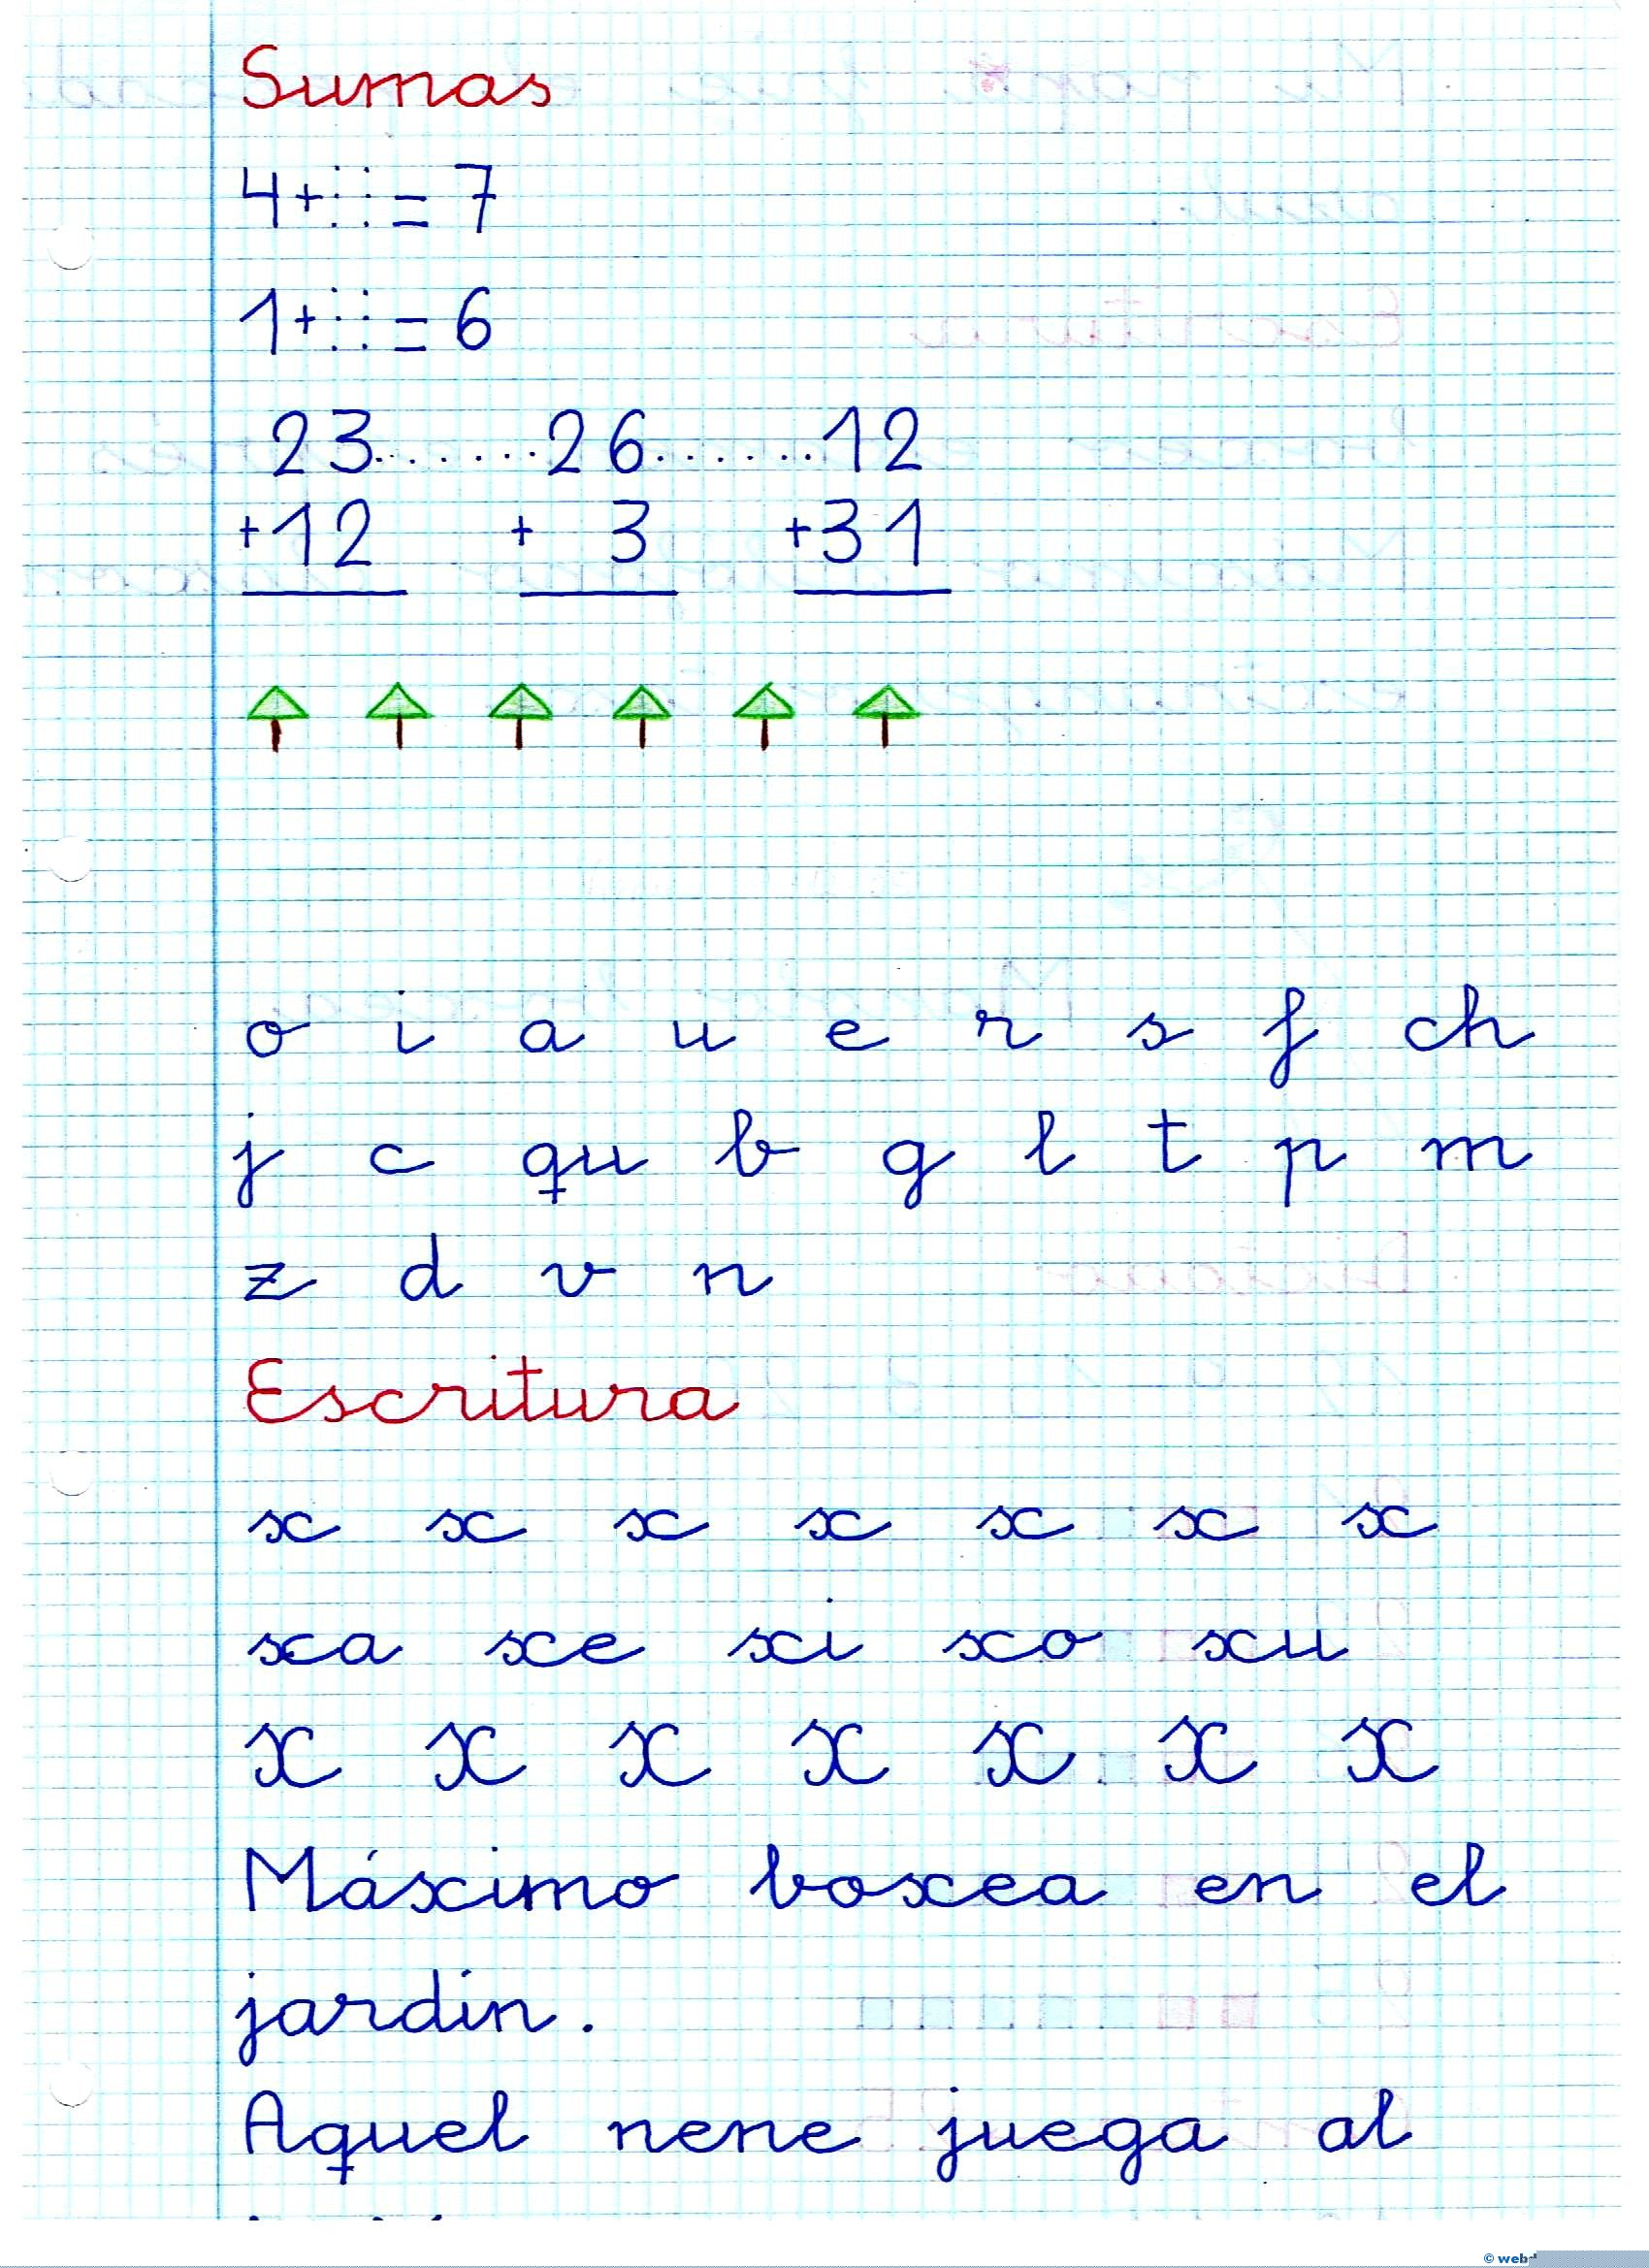 Sumas
4+:::= 7
1+:::= 6
23.......26.......12
+12 + 3 +31
o i a u e r s f ch
j c qu b g l t p m
z d v n
Escritura
x x x x x x x
xa xe xi xo xu
X X X X X X X
Máximo boxea en el
jardín.
Aquel nene juega al
© web